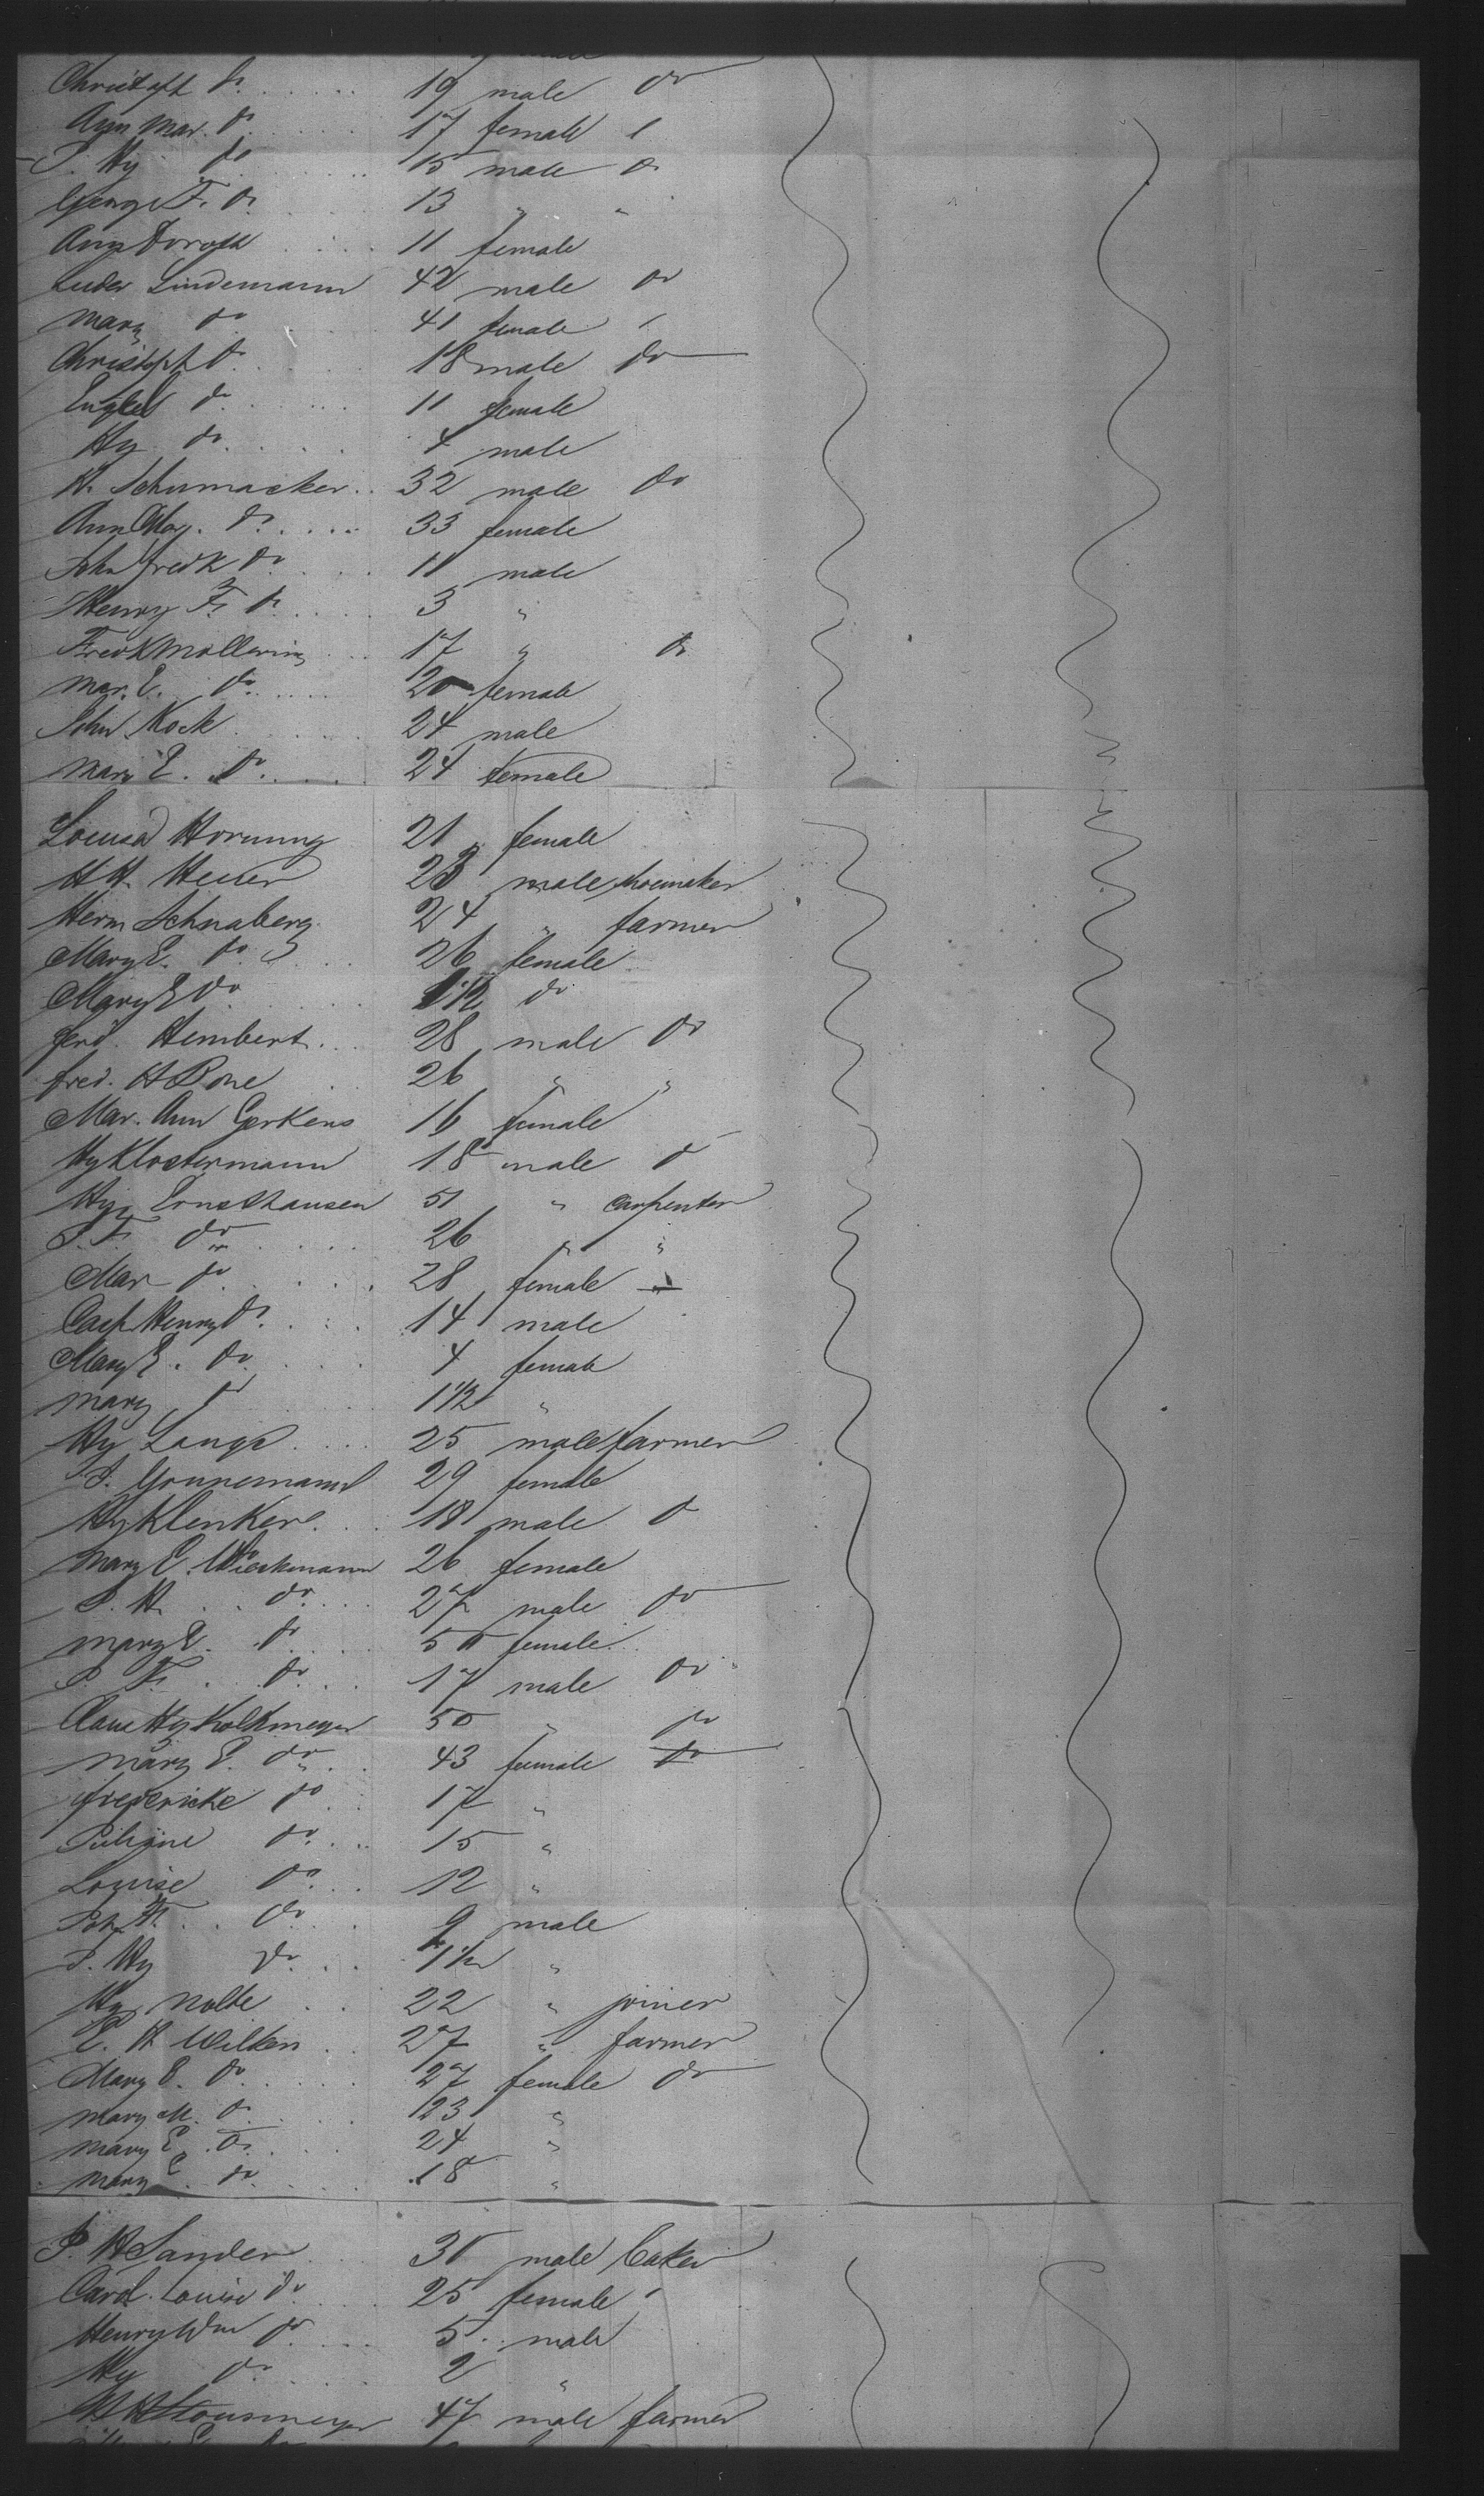 Christoph do 19 male do
Ann Mar. do 17 female
J. Hy do 15 male do
George F. do 13 " "
Ann Doroth 11 female
Luder Lindemann 42 male do
Mary do 41 female
Christoph do 18 male do
Engkel do 11 female
Hy do 4 male
H. Schumacker 32 male do
Ann Mag. do 33 female
John fredk do 11 male
Henry F. do 3 "
Fredk Mollering 17 " do
Mar. E. do 20 female
John Kock 24 male
Mary E. do 24 female
Louisa Hornung 21 female
H H. Heuer 23 male shoemaker
Herm Schnaberg 24 " farmer
Mary E. do 26 female
Mary E do 1 1/2 do
ferd. Hembert 28 male do
fred. H Bone 26 " "
Mar. Ann Gerkens 16 female
Hy Klostermann 18 male do
Hy Ernsthausen 51 " carpenter
J. F. do 26 " "
Mar do 28 female
Casp Henry do 14 male
Mary E. do 4 female
Mary do 1 1/2 "
Hy Lange 25 male farmer
J. Gonnemann 29 female
Hy Klenker 18 male do
Mary E. Wieckmann 26 female
J. H. do 27 male do
Mary E. do 50 female
J. F. do 17 male do
Claus Hy Kolkmeyer 50 " do
Mary E. do 43 female do
fredericke do 17 "
do 15 "
Louise do 12 "
do 9 male
J. Hy do 1 1/2 "
Hy Nolte 22 " joiner
E. H Wilken 27 " farmer
Mary E. do 27 female do
Mary M. do 23 "
Mary E. do 24 "
Mary E. do 18 "
J. H Sander 30 male baker
Carol. Louise do 25 female
Henry Wm do 5 male
Hy do 2 "
47 male farmer